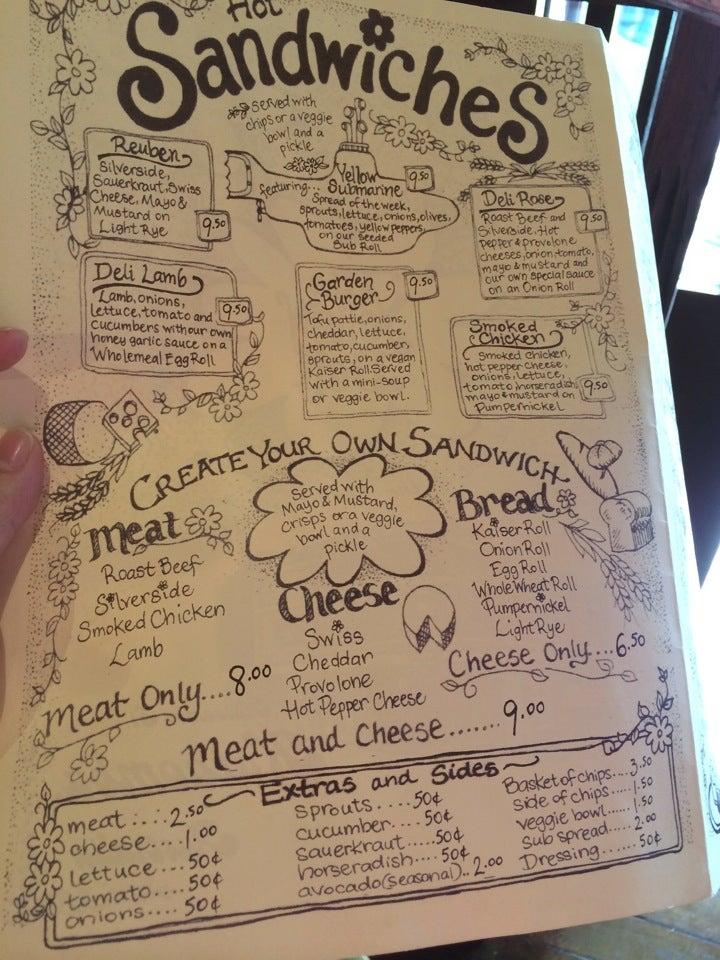 Hot
Sandwiches
served with
chips or a veggie
bowl and a
pickle
Reuben
Silverside,
Sauerkraut, Swiss
Cheese, Mayo &
Mustard on
Light Rye
9.50
Yellow
Submarine
9.50
featuring...
Spread of the week,
sprouts, lettuce, onions, olives,
tomatoes, yellow peppers,
on our seeded
Sub Roll
Deli Rose
Roast Beef and
Silverside. Hot
pepper & provolone
cheeses, onion, tomato,
mayo & mustard and
our own special sauce
on an Onion Roll
9.50
Deli Lamb
Lamb, onions,
lettuce, tomato and
cucumbers with our own
honey garlic sauce on a
Wholemeal Egg Roll
9.50
Garden
Burger
9.50
Tofu pattie, onions,
cheddar, lettuce,
tomato, cucumber,
sprouts, on a vegan
Kaiser Roll. Served
with a mini-soup
or veggie bowl.
Smoked
Chicken
smoked chicken,
hot pepper cheese,
onions, lettuce,
tomato, horseradish,
mayo & mustard on
Pumpernickel
9.50
CREATE YOUR OWN SANDWICH
Served with
Mayo & Mustard,
Crisps or a veggie
bowl and a
pickle
Meat
Roast Beef
Silverside
Smoked Chicken
Lamb
Meat Only....8.00
Cheese
Swiss
Cheddar
Provolone
Hot Pepper Cheese
Bread
Kaiser Roll
Onion Roll
Egg Roll
Whole Wheat Roll
Pumpernickel
Light Rye
Cheese Only...6.50
Meat and Cheese.......9.00
Extras and Sides
meat.....2.50
cheese....1.00
lettuce....50¢
tomato....50¢
onions....50¢
sprouts.....50¢
cucumber....50¢
sauerkraut....50¢
horseradish....50¢
avocado (seasonal)..2.00
Basket of chips....3.50
side of chips....1.50
veggie bowl....1.50
sub spread....2.00
Dressing.....50¢